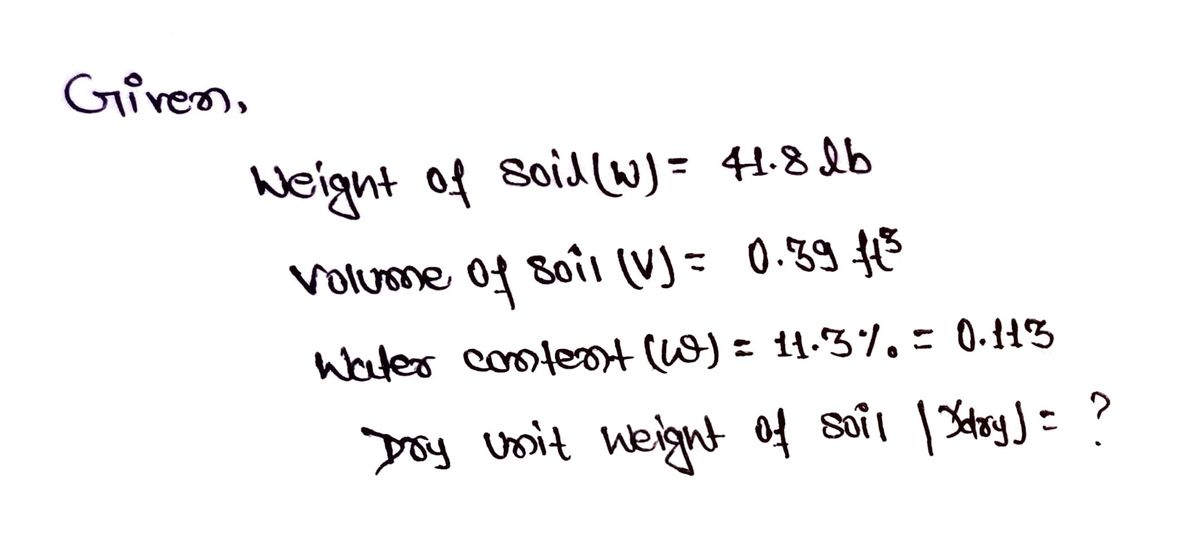 Given,
Weight of soil (W) = 41.8 lb
Volume of soil (V) = 0.39 ft³
Water content (ω) = 11.3% = 0.113
Dry unit weight of soil (γdry) = ?